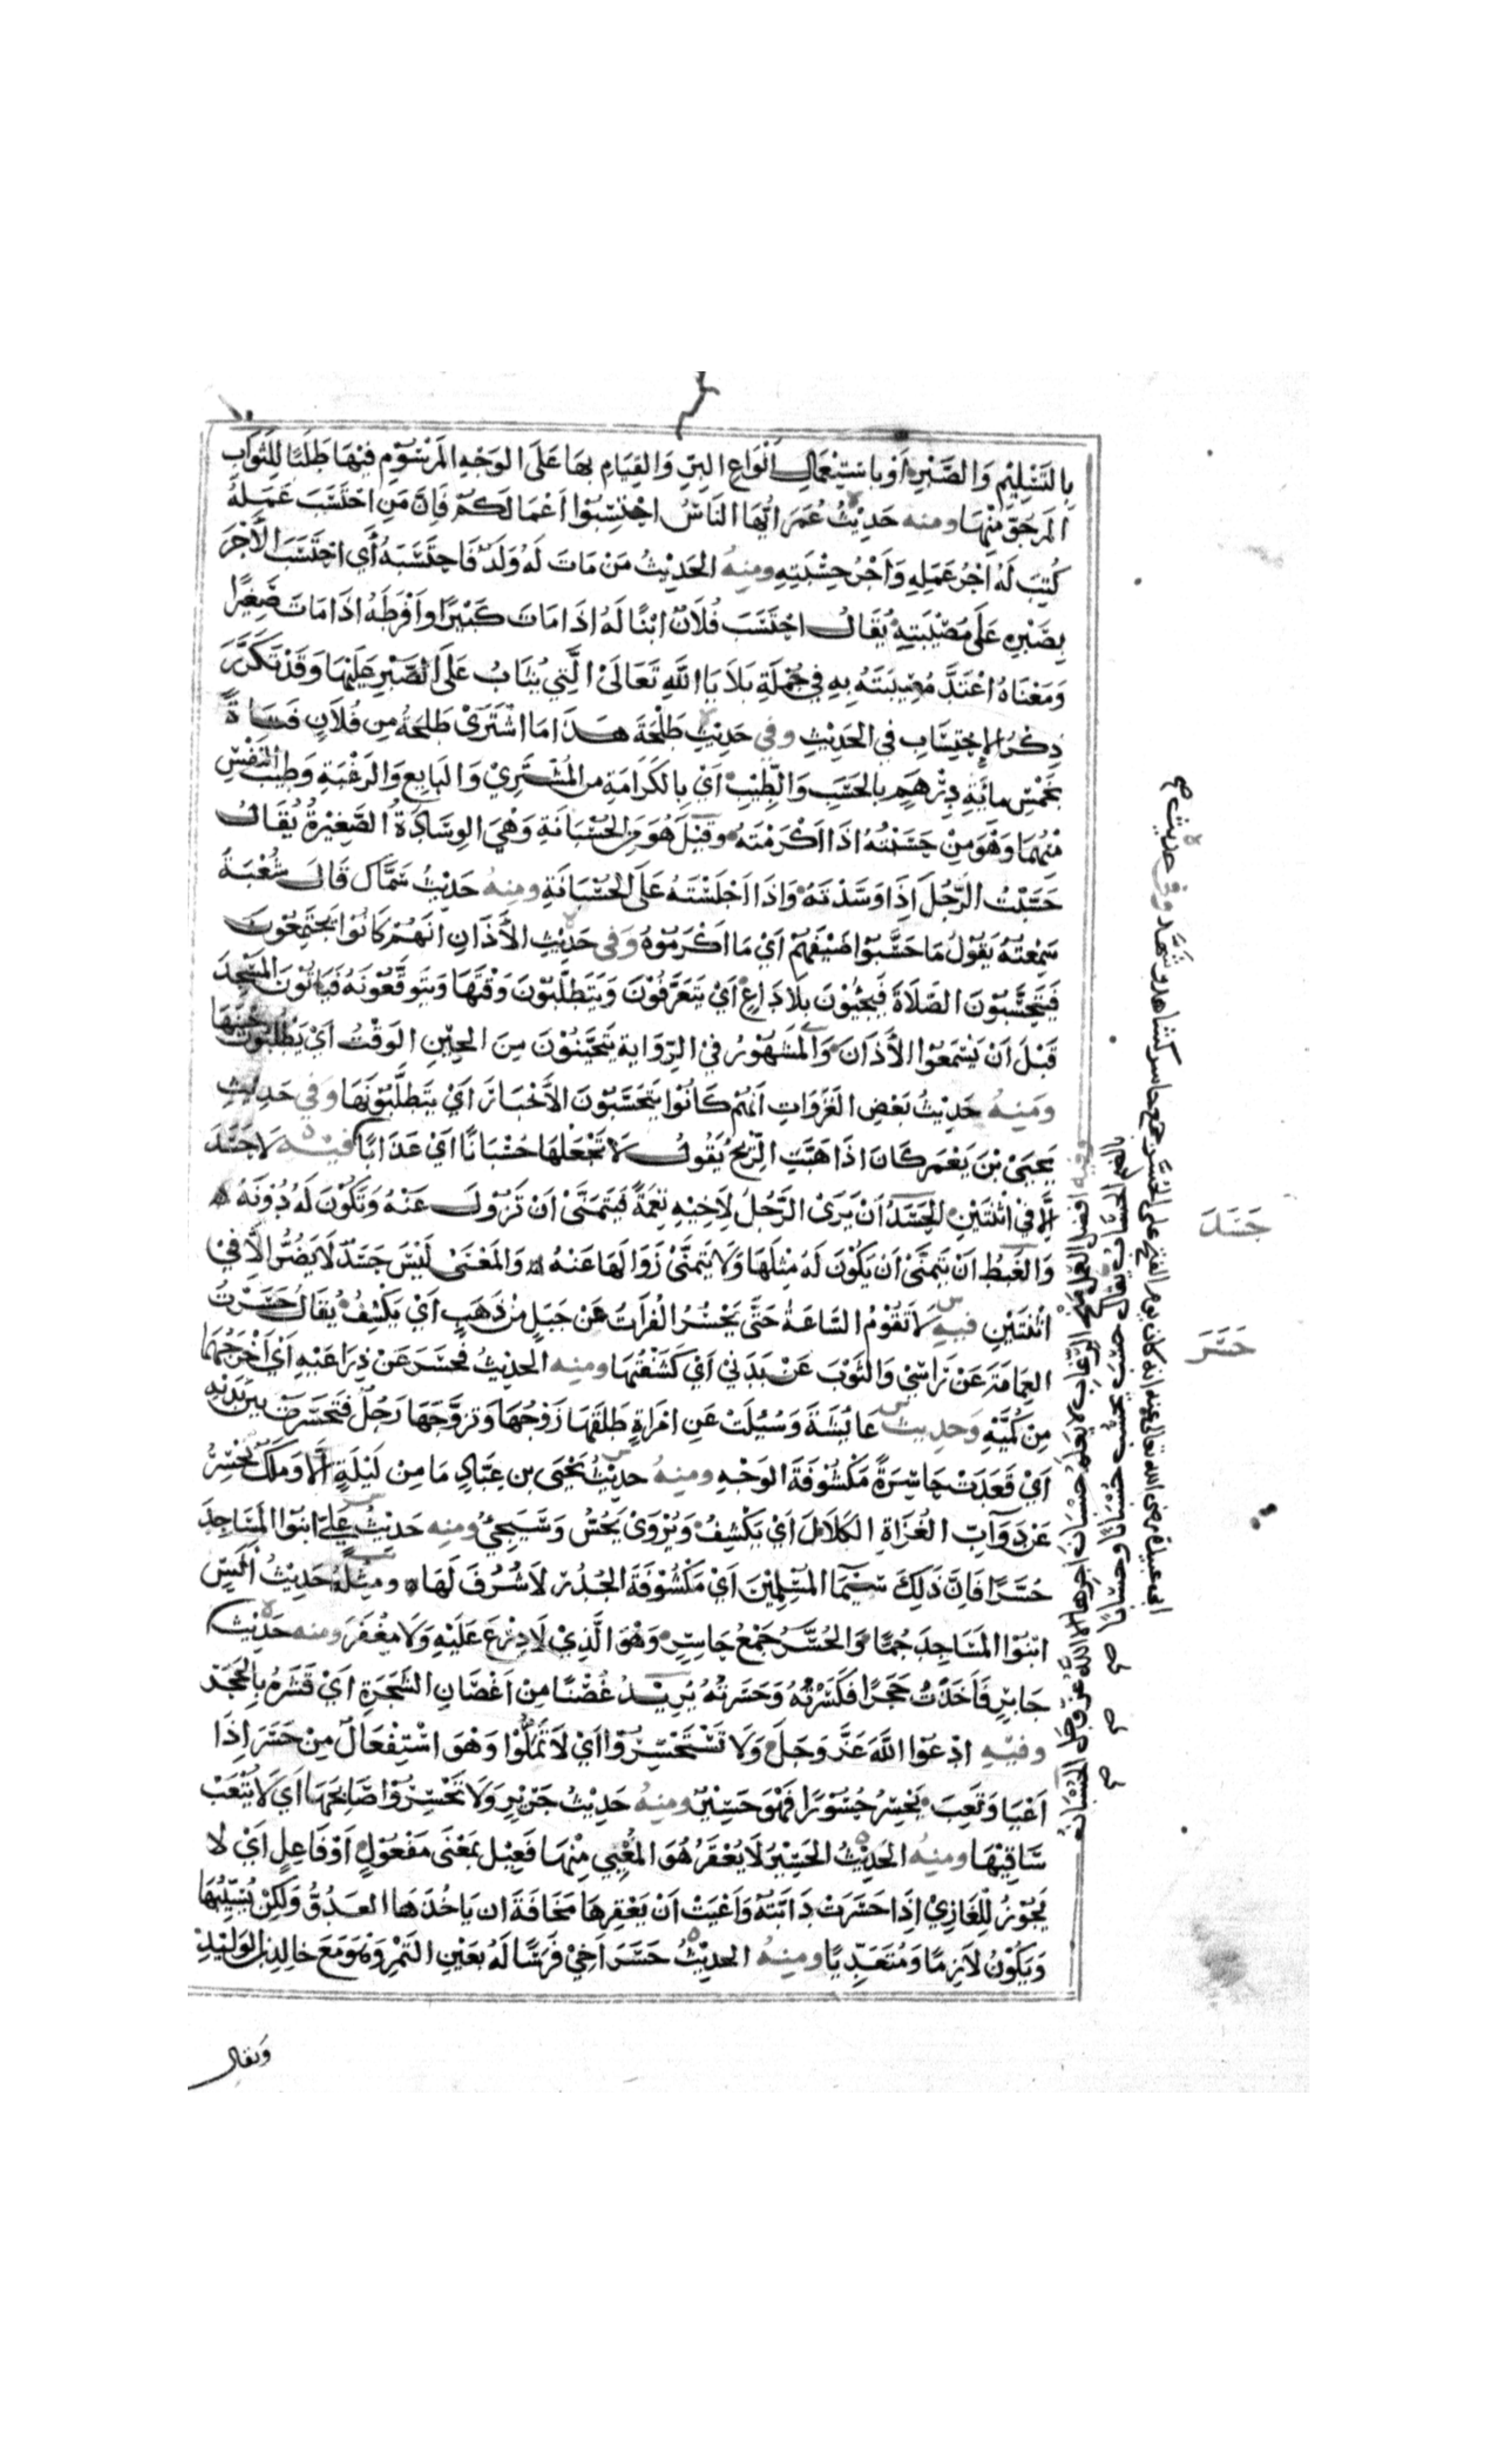 بِالتَّسْلِيْمِ وَالصَّبْرِ أَوْ بِاسْتِعْمَالِ أَنْوَاعِ البِرِّ وَالقِيَامِ بِهَا عَلَى الوَجْهِ المَرْسُوْمِ فِيْهَا طَلَبًا لِلثَّوَابِ
المَرْجُوِّ مِنْهَا ومنه حَدِيْثُ عُمَرَ أَيُّهَا النَّاسُ احْتَسِبُوْا أَعْمَالَكُمْ فَإِنَّ مَنِ احْتَسَبَ عَمَلَهُ
كُتِبَ لَهُ أَجْرُ عَمَلِهِ وَأَجْرُ حِسْبَتِهِ ومِنْهُ الحَدِيْثُ مَنْ مَاتَ لَهُ وَلَدٌ فَاحْتَسَبَهُ أَي احْتَسَبَ الأَجْرَ
بِصَبْرِهِ عَلَى مُصِيْبَتِهِ يُقَالُ احْتَسَبَ فُلَانٌ ابْنًا لَهُ إِذَا مَاتَ كَبِيْرًا وَافْرَطَهُ اذَا مَاتَ صَغِيْرًا
وَمَعْنَاهُ اعْتَدَّ مُصِيْبَتَهُ بِهِ فِي جُمْلَةِ بَلَايَا اللَّهِ تَعَالَى الَّتِي يُثَابُ عَلَى الصَّبْرِ عَلَيْهَا وَقَدْ تَكَرَّرَ
ذِكْرُ الاِحْتِسَابِ فِي الحَدِيْثِ وفي حَدِيْثِ طَلْحَةَ هَذَا مَا اشْتَرَى طَلْحَةُ مِنْ فُلَانٍ فَتَاهُ
بِخَمْسِ مائَةِ دِرْهَمٍ بِالحَسَبِ وَالطِّيْبِ أَيْ بِالكَرَامَةِ مِنَ المُشْتَرِيْ وَالبَايِعِ وَالرَغْبَةِ وَطِيْبِ النَّفْسِ
مِنْهُمَا وَهُوَ مِنْ حَسَّبْتُهُ اذَا أَكْرَمْتَهُ وَقِيْلَ هُوَ مِنَ الحُسْبَانَةِ وَهْيَ الوِسَادَةُ الصَّغِيْرَةُ يُقَالُ
حَسَّبْتُ الرَّجُلَ إِذَا وَسَّدْتَهُ وَاذَا أَجْلَسْتَهُ عَلَى الحُسْبَانَةِ ومِنْهُ حَدِيْثُ سَمَّاك قَالَ شُعْبَةُ
سَمِعْتُهُ يَقُوْلُ مَا حَسَّبُوْا ضَيْفَهُمْ أَيْ مَا أَكْرَمُوْهُ وَفِي حَدِيْثِ الأَذَانِ انَّهُمْ كَانُوْا يَجْتَمِعُوْنَ
فَيَتَحَسَّبُوْنَ الصَّلَاةَ فَيَجِيْئُوْنَ بِلَا دَاعٍ أَيْ يَتَعَرَّفُوْنَ وَيَتَطَلَّبُوْنَ وَقْتَهَا وَيَتَوَقَّعُوْنَهُ فَيَأْتُوْنَ المَسْجِدَ
قَبْلَ أَنْ يَسْمَعُوْا الأَذَانَ وَالمَشْهُوْرُ فِي الرِّوَايَةِ يَتَحَيَّنُوْنَ مِنَ الحِيْنِ الوَقْتِ أَيْ يَطْلُبُوْنَ حِيْنَهَا
وَمِنْهُ حَدِيْثُ بَعْضِ الغَزَوَاتِ أَنَّهُمْ كَانُوْا يَتَحَسَّبُوْنَ الأَخْبَارَ أَيْ يَتَطَلَّبُوْنَهَا وَفِي حَدِيْثِ
يَحْيَى بْنِ يَعْمَر كَانَ اذَا هَبَّتِ الرِّيْحُ يَقُولُ لَا تَجْعَلْهَا حُسْبَانًا أَيْ عَذَابًا فِيْهِ لَا حَسَدَ
إِلَّا فِي اثْنَتَيْنِ الحَسَدُ أَنْ يَرَى الرَّجُلُ لِأَخِيْهِ نِعْمَةً فَيَتَمَنَّى أَنْ تَزُوْلَ عَنْهُ وَتَكُوْنَ لَهُ دُوْنَهُ
وَالغَبْطُ أَنْ يَتَمَنَّى أَنْ يَكُوْنَ لَهُ مِثْلُهَا وَلَا يَتَمَنَّى زَوَالَهَا عَنْهُ وَالمَعْنَى لَيْسَ حَسَدٌ لَا يَضُرُّ الَّا فِيْ
اثْنَتَيْنِ فيهِ لَا تَقُوْمُ السَّاعَةُ حَتَّى يَحْسِرَ الفُرَاتُ عَنْ جَبَلٍ مِنْ ذَهَبٍ أَيْ يَكْشِفُ يُقَالُ حَسَرْتُ
العِمَامَةَ عَنْ رَأْسِي وَالثَّوْبَ عَنْ بَدَنِيْ أَيْ كَشَفْتُهَا ومِنه الحَدِيْثُ فَحَسَرَ عَنْ ذِرَاعَيْهِ أَيْ أَخْرَجَهُمَا
مِنْ كُمَّيْهِ وَحَدِيث عَائِشَةَ وَسُئِلَتْ عَنِ امْرَأَةٍ طَلَّقَهَا زَوْجُهَا وَتَزَوَّجَهَا رَجُلٌ فَتَحَسَّرَتْ بَيْنَ يَدَيْهِ
أَيْ قَعَدَتْ حَاسِرَةً مَكْشُوْفَةَ الوَجْهِ ومِنهُ حَدِيْثُ يَحْيَى بنِ عَبَّادٍ مَا مِنْ لَيْلَةٍ إِلَّا وَمَلَكٌ يَحْسِرُ
عَنْ دَوَآبِّ الغُزَاةِ الكَلَالَ أَيْ يَكْشِفُ وَيُرْوَى يَحُسُّ وَسَيَجِيْءُ ومِنه حَدِيْثُ عَلِيّ ابْنُوْا المَسَاجِدَ
حُسَّرًا فَإِنَّ ذَلِكَ سِيْمَا المُسْلِمِيْنَ أَيْ مَكْشُوْفَةَ الجُدُرِ لَا شُرَفَ لَهَا وَمِثْلُهُ حَدِيْثُ أَنَسٍ
ابْنُوْا المَسَاجِدَ جُمًّا وَالحُسَّرُ جَمْعُ حَاسِرٍ وَهْوَ الَّذِيْ لَا دِرْعَ عَلَيْهِ وَلَا مِغْفَرَ ومنه حَدِيْثُ
جَابِرٍ فَأَخَذْتُ حَجَرًا فَكَسَرْتُهُ وَحَسَرْتُهُ يُرِيْدُ غُصْنًا مِنْ أَغْصَانِ الشَّجَرَةِ أَيْ قَشَرَهُ بِالحَجَرِ
وفيْهِ ادْعُوْا اللَّهَ عَزَّ وَجَلَّ وَلَا تَسْتَحْسِرُوْا أَيْ لَا تَمَلُّوْا وَهْوَ اسْتِفْعَالٌ مِنْ حَسَرَ إِذَا
أَعْيَا وَتَعِبَ يَحْسِرُ حُسُوْرًا فَهُوَ حَسِيْرٌ ومِنهُ حَدِيْثُ جَرِيْرٍ وَلَا تَحْسِرُوْا صَابِحَهَا أَيْ لَا يُتْعَبُ
سَاقِيْهَا ومِنهُ الحَدِيْثُ الحَسِيْرُ لَا يُعْقَرُ هُوَ المُعْيِي مِنْهَا فَعِيْلٌ بِمَعْنَى مَفْعُوْلٍ أَوْ فَاعِلٍ أَيْ لا
يَجُوْزُ لِلْغَازِيْ إِذَا حَسَرَتْ دَابَّتُهُ وَأَعْيَتْ أَنْ يَعْقِرَهَا مَخَافَةَ ان يَأخُذَهَا العَدُوُّ وَلَكِنْ يُسَيِّبُهَا
وَيَكُوْنُ لَازِمًا وَمُتَعَدِّيًا ومِنهُ الحَدِيْثُ حَسَرَ أَخِيْ فَرَسًا لَهُ بِعَيْنِ التَّمْرِ وَهُوَ مَعَ خَالِدِ بنِ الوَلِيْدِ
ويقال
حَسَدَ
حَسَرَ
وفيه افضل العمل منح الرِّغَاب لا يعلم حُسْبَان اجرها الا الله عزّ وجل الحُسْبَان
بالضم الحساب يقال حسَب يحسُب حُسْبَانًا وحِسْبانًا
ابى عبيدة رضى الله تعالى عنه انه كان يوم الفتح على الحُسَّر جمع حاسر كشاهد وشُهَّد وفي حديث